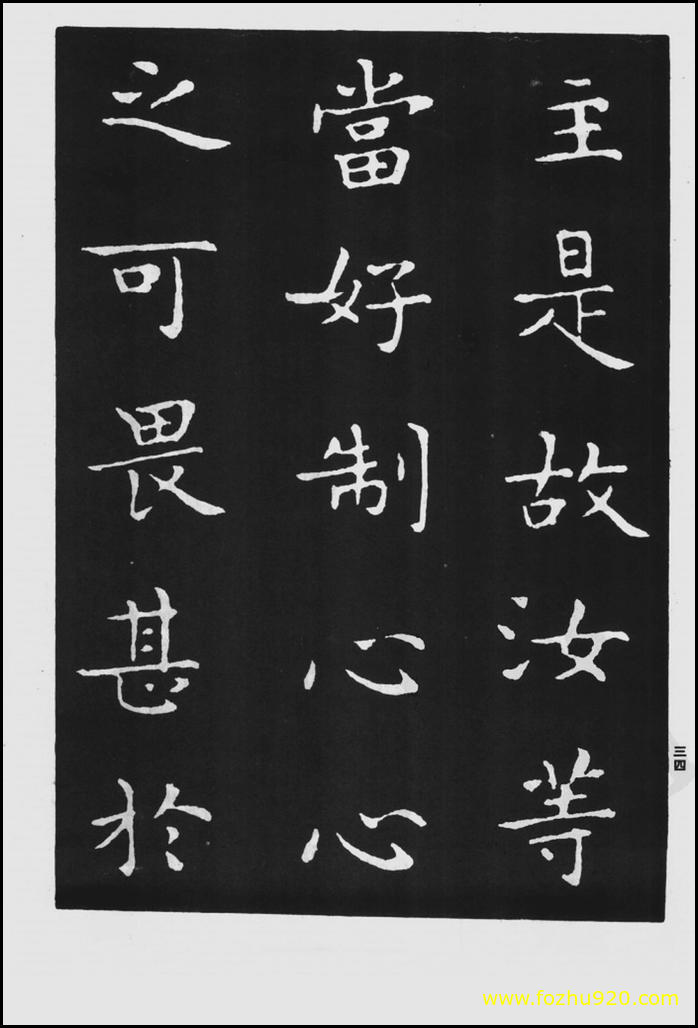 主是故汝等
當好制心心
之可畏甚於
三四
www.fozhu920.com